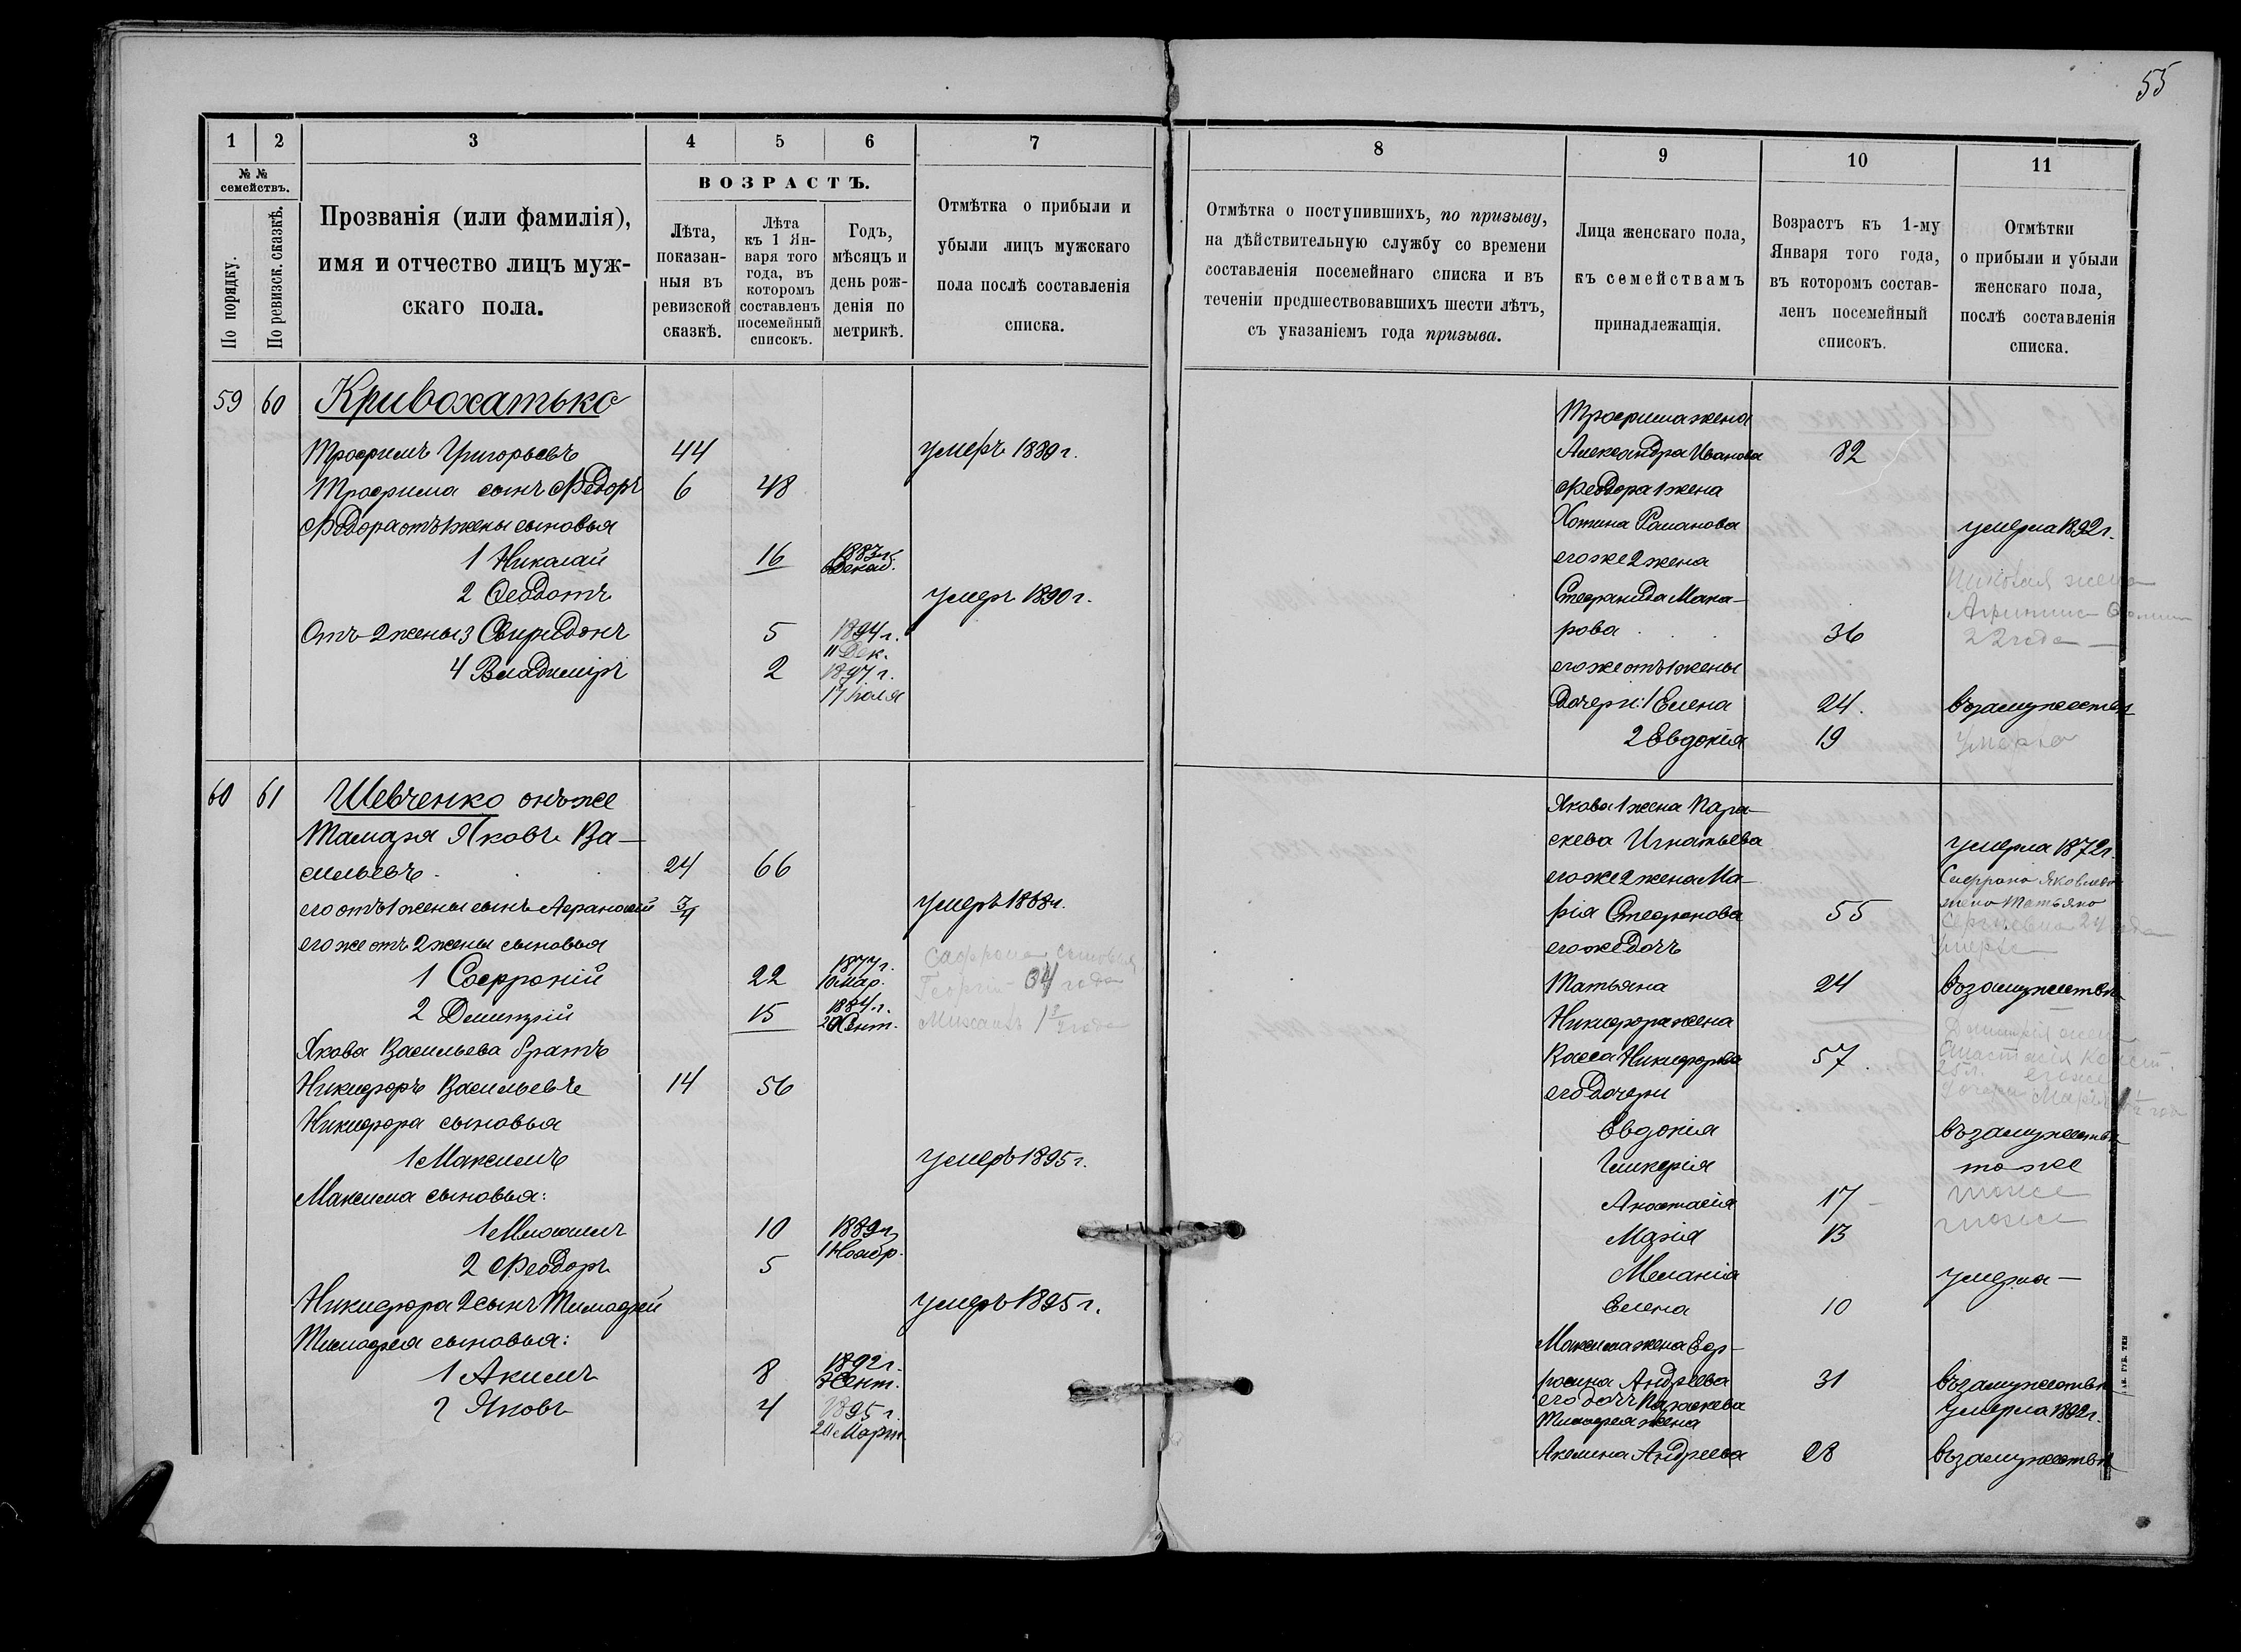 55
1
2
3
4
5
6
7
№ №
семействъ.
По порядку.
По ревизск. сказкѣ.
Прозванія (или фамилія),
имя и отчество лицъ муж-
скаго пола.
ВОЗРАСТЪ.
Лѣта,
показан-
ныя въ
ревизской
сказкѣ.
Лѣта
къ 1 Ян-
варя того
года, въ
которомъ
составленъ
посемейный
списокъ.
Годъ,
мѣсяцъ и
день рож-
денія по
метрикѣ.
Отмѣтка о прибыли и
убыли лицъ мужскаго
пола послѣ составленія
списка.
59 60 Кривохатько
Трофимъ Григорьевъ 44 умеръ 1889 г.
Трофима сынъ Ѳедоръ 6 48
Ѳедора отъ 1 жены сыновья
1 Николай 16 1883 г.
6 Декаб.
2 Ѳеодотъ умеръ 1890 г.
Отъ 2 жены 3 Свиридонъ 5 1894 г.
11 Дек.
4 Владимiръ 2 1897 г.
17 Iюля
60 61 Шевченко онъ же
Тамаря Яковъ Ва-
сильевъ 24 66
его отъ 1 жены сынъ Афанасій 3/4 умеръ 1868 г.
его же отъ 2 жены сыновья
1 Софроній 22 1877 г.
10 мар.
Сафрона сыновья
Георгій 04 года
2 Димитрій 15 1884 г.
20 Сент.
Михаилъ 1 года
Якова Васильева братъ
Никифоръ Васильевъ 14 56
Никифора сыновья
1 Максимъ умеръ 1895 г.
Максима сыновья:
1 Михаилъ 10 1889 г.
1 Ноябр.
2 Ѳеодоръ 5
Никифора 2 сынъ Тимофей умеръ 1895 г.
Тимофея сыновья:
1 Акимъ 8 1892 г.
Сент.
2 Яковъ 4 1895 г.
20 Март.
8
9
10
11
Отмѣтка о поступившихъ, по призыву,
на дѣйствительную службу со времени
составленія посемейнаго списка и въ
теченіи предшествовавшихъ шести лѣтъ,
съ указаніемъ года призыва.
Лица женскаго пола,
къ семействамъ
принадлежащія.
Возрастъ къ 1-му
Января того года,
въ которомъ состав-
ленъ посемейный
списокъ.
Отмѣтки
о прибыли и убыли
женскаго пола,
послѣ составленія
списка.
Трофима жена
Александра Иванова 82
Ѳеодора 1 жена
Хотина Романова умерла 1892 г.
его же 2 жена
Николая жена
Стефанида Мака-
рова 36
22 года
его же отъ 1 жены
дочери: 1 Елена 24. въ замужествѣ
2 Евдокія 19 умерла
Якова 1 жена Пара-
скева Игнатьева умерла 1872 г.
его же 2 жена Ма- Софрона Яковлева
рія Стефанова 55 жена Татьяна
24 года
его же дочь умерла
Татьяна 24 въ замужествѣ
Никифора жена
Васса Никифорова 57
Димитрія жена
Анастасія
25 л. его же
его дочери
дочери Марія 1 1/2 год
Евдокія въ замужествѣ
Гликерія тоже
Анастасія 17 тоже
Марія 13 тоже
Меланія умерла
Елена 10
Максима жена Евф-
росина Андреева 31 въ замужествѣ
его дочь Параскева умерла 1892 г.
Тимофея жена
Акелина Андреева 28 въ замужествѣ